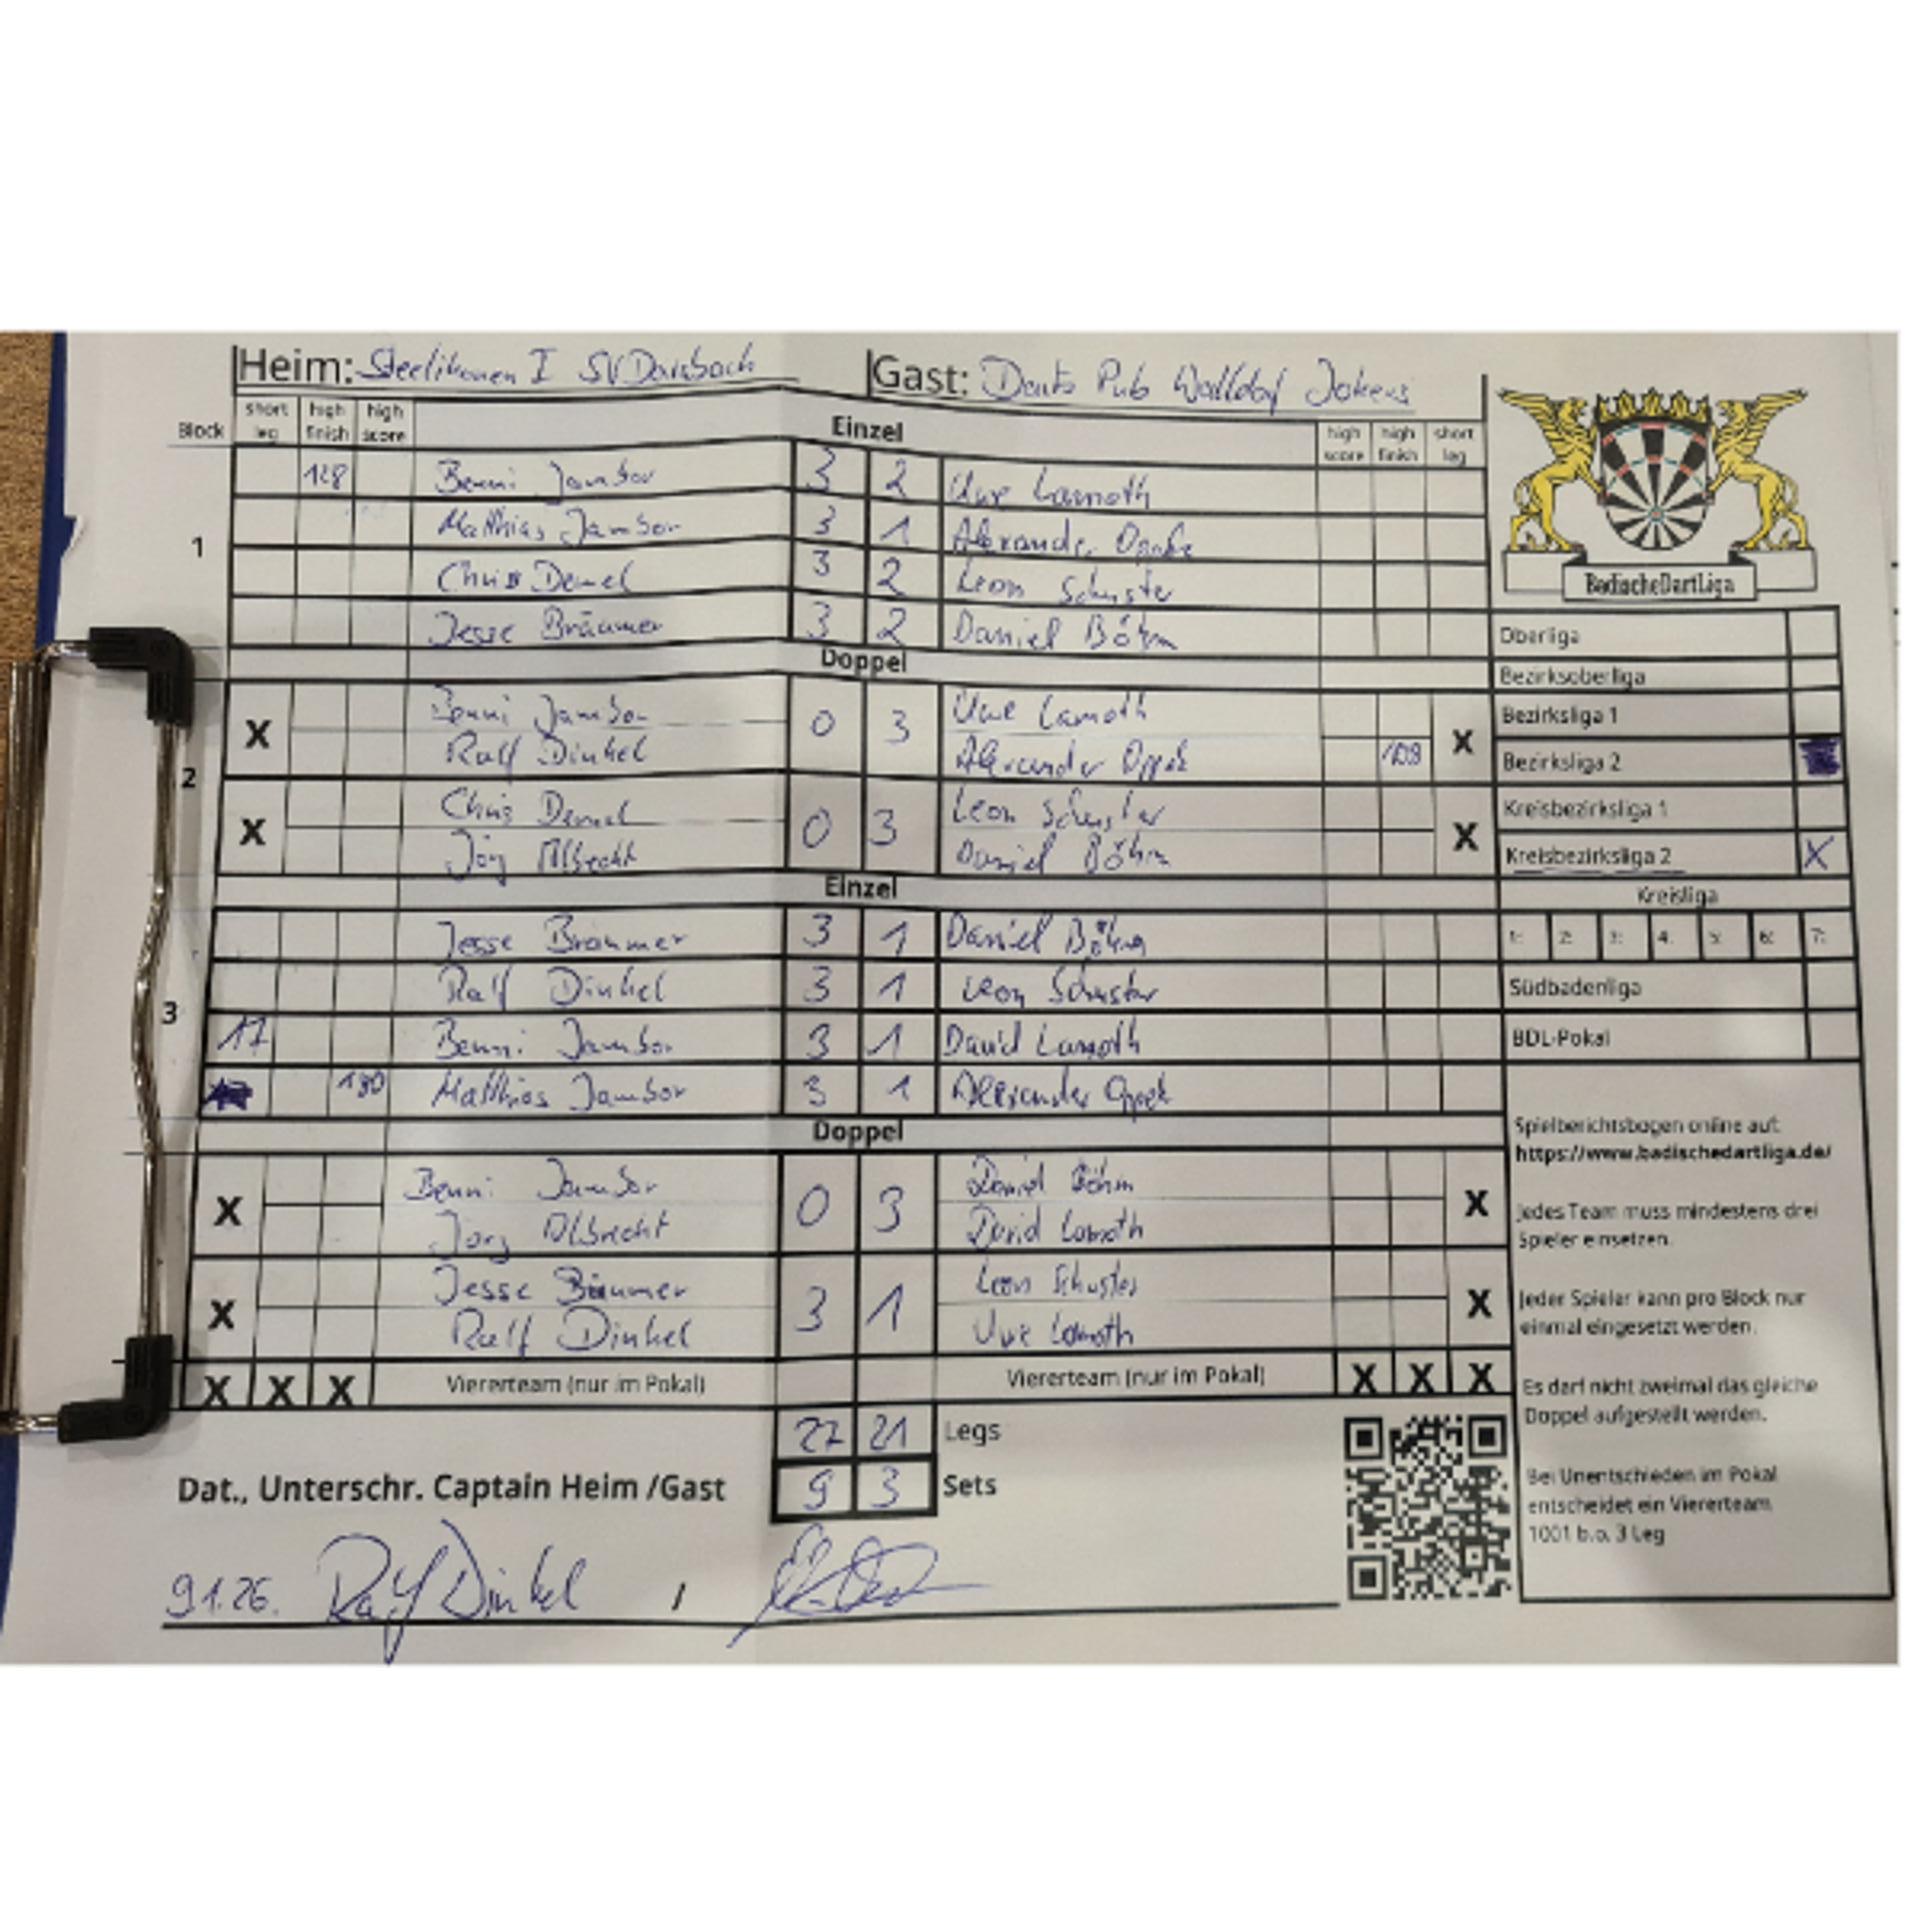 Heim: Steelikonen I SV Daisbach Gast: Darts Pub Walldorf Jokers
Block short leg high finish high score Einzel high score high finish short leg
128 Benni Jambor 3 2 Uwe Lamoth
1 Matthias Jambor 3 1 Alexander
Chris Demel 3 2 Leon Schuster
Jesse Bräumer 3 2 Daniel Böhm
Doppel
X Benni Jambor 0 3 Uwe Lamoth X
Ralf Dinkel Alexander 108
2
X Chris Demel 0 3 Leon Schuster X
Jörg Albrecht Daniel Böhm
Einzel
Jesse Bräumer 3 1 Daniel Böhm
Ralf Dinkel 3 1 Leon Schuster
3
17 Benni Jambor 3 1 David Lamoth
180 Matthias Jambor 3 1 Alexander
Doppel
X Benni Jambor 0 3 Daniel Böhm X
Jörg Albrecht David Lamoth
X Jesse Bräumer 3 1 Leon Schuster X
Ralf Dinkel Uwe Lamoth
X X X Viererteam (nur im Pokal) Viererteam (nur im Pokal) X X X
27 21 Legs
9 3 Sets
Dat., Unterschr. Captain Heim /Gast
9.1.26. Ralf Dinkel /
BadischeDartLiga
Oberliga
Bezirksoberliga
Bezirksliga 1
Bezirksliga 2
Kreisbezirksliga 1
Kreisbezirksliga 2 X
Kreisliga
1: 2: 3: 4: 5: 6: 7:
Südbadenliga
BDL-Pokal
Spielberichtsbogen online auf:
https://www.badischedartliga.de/
Jedes Team muss mindestens drei
Spieler einsetzen.
Jeder Spieler kann pro Block nur
einmal eingesetzt werden.
Es darf nicht zweimal das gleiche
Doppel aufgestellt werden.
Bei Unentschieden im Pokal
entscheidet ein Viererteam
1001 b.o. 3 Leg